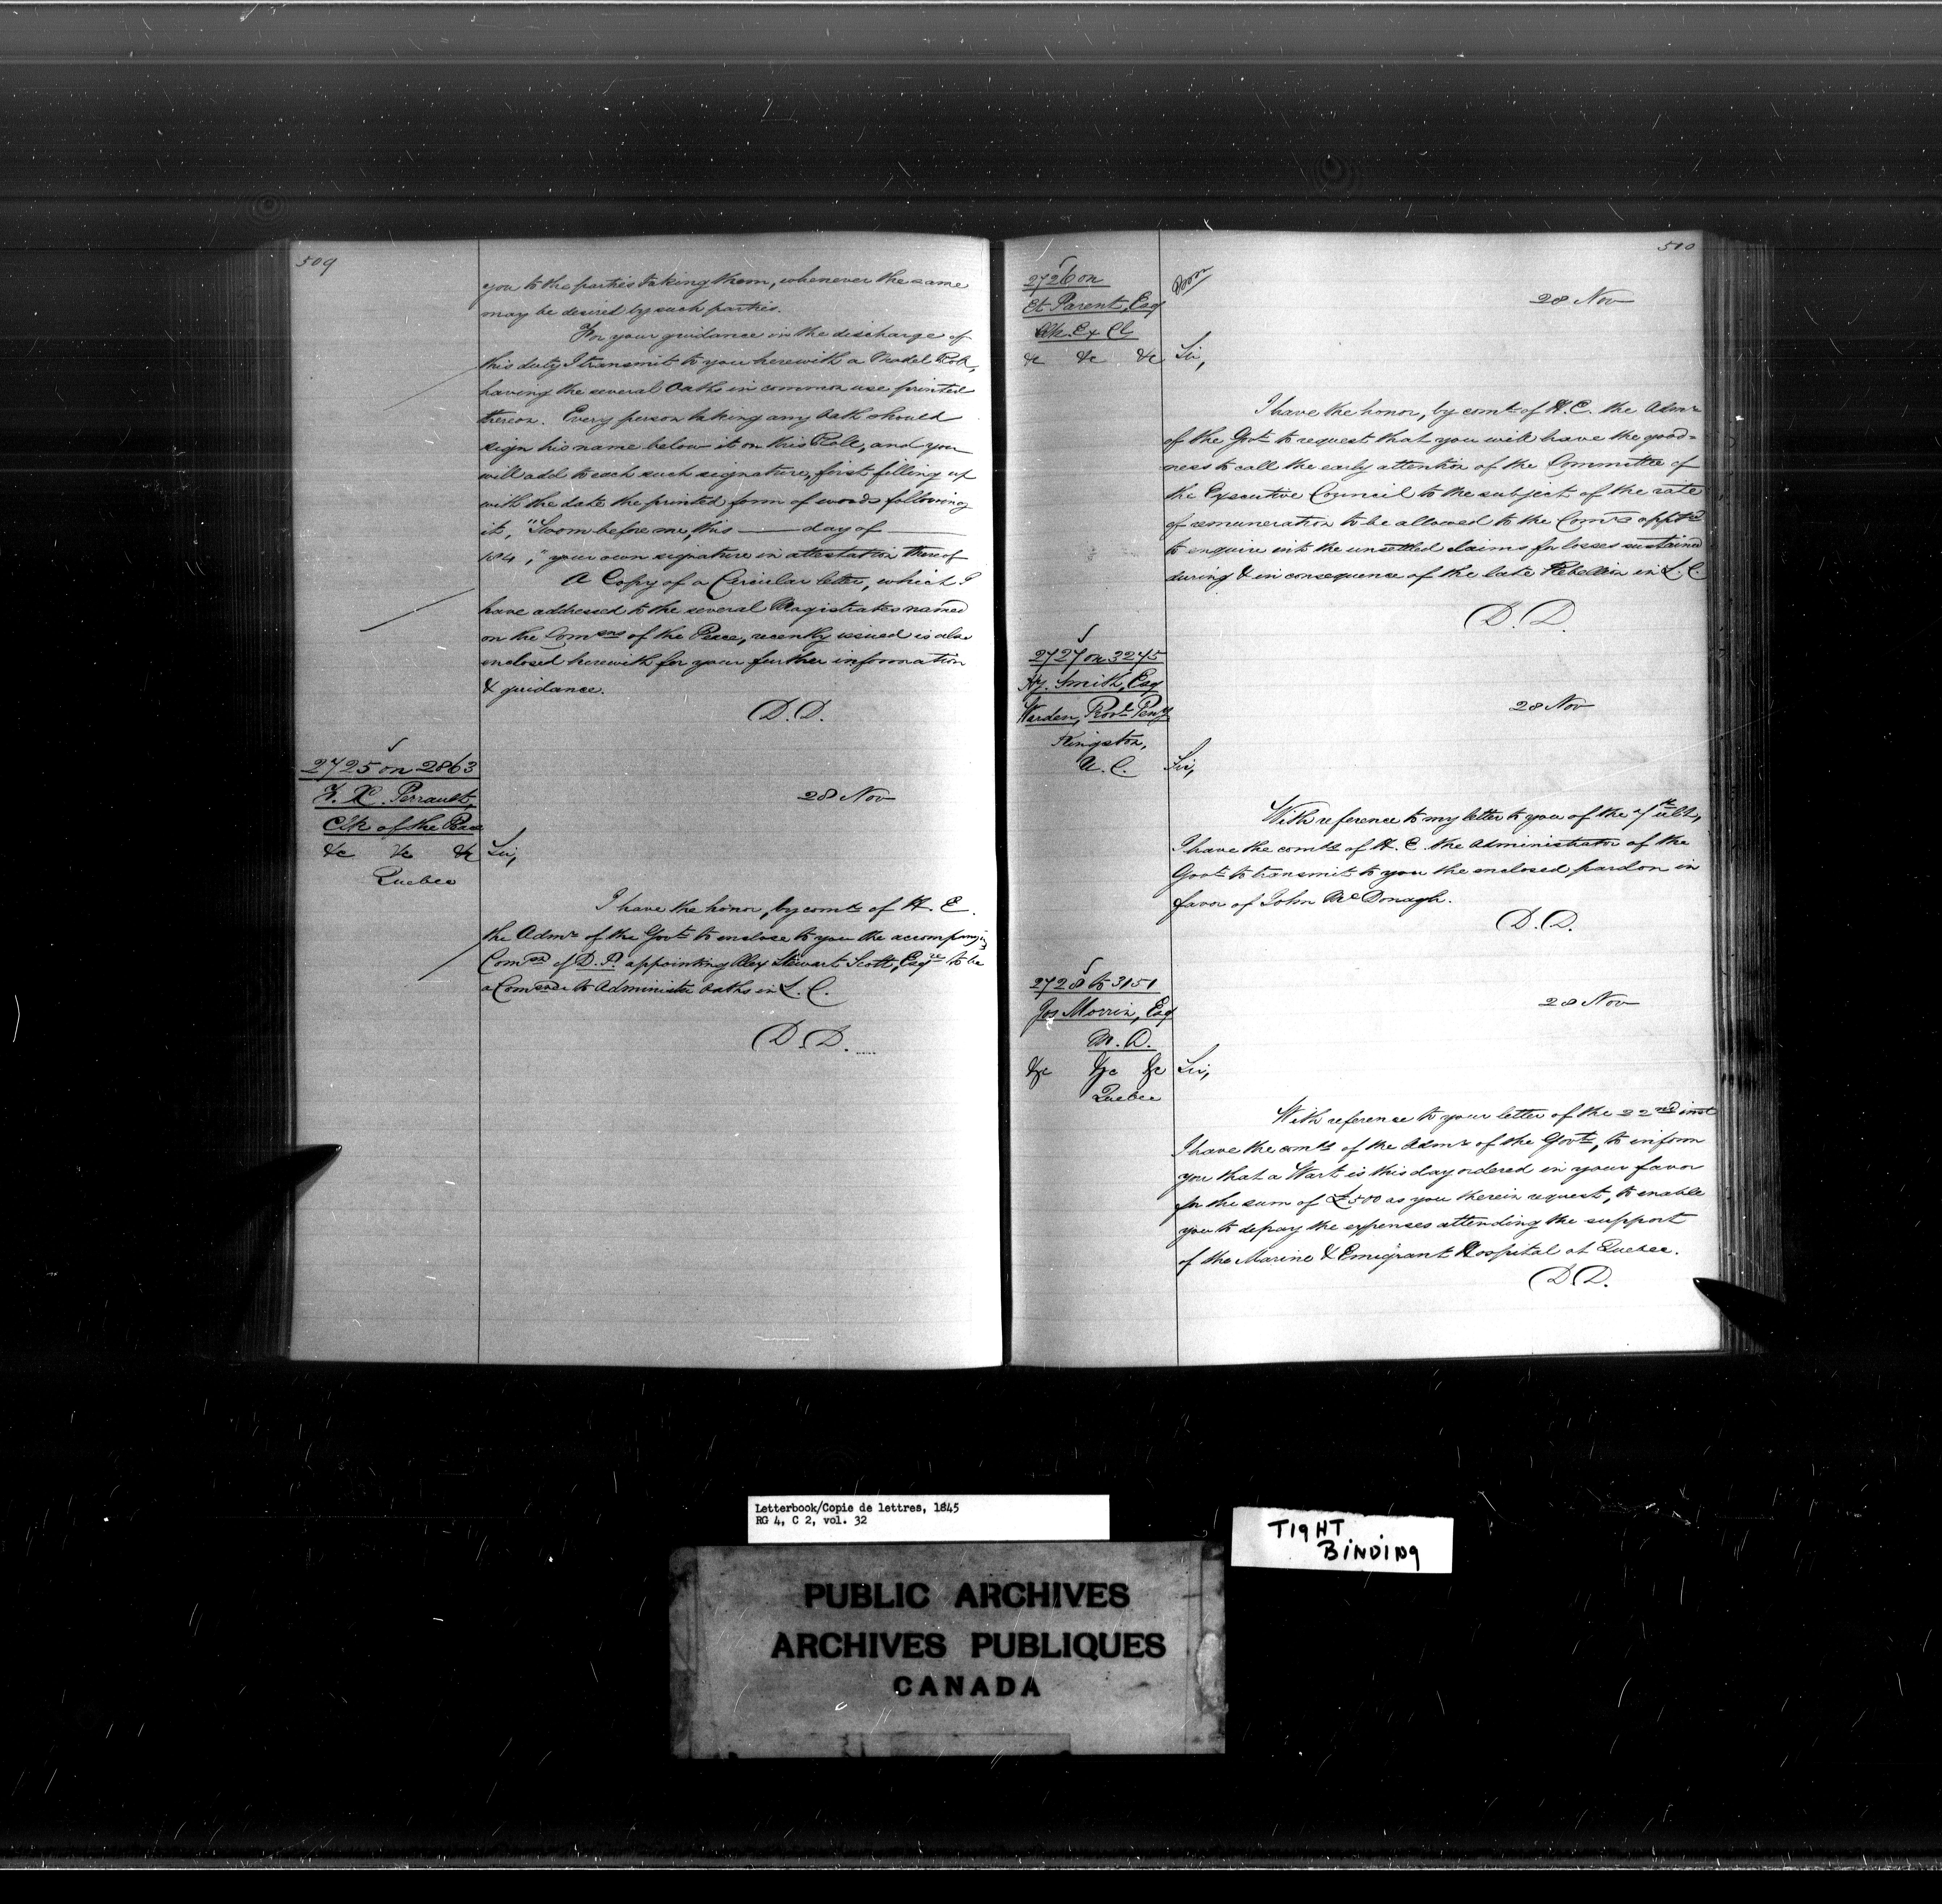 509
you to the parties taking them, whenever the same
may be desired by such parties.
For your guidance in the discharge of
this duty I transmit to you herewith a Model Roll,
having the several Oaths in common use printed
thereon. Every person taking any Oath should
sign his name below it on this Roll, and you
will add to each such signature, first filling up
with the date the printed form of words following
it, "Sworn before me, this — day of —
184 ," your own signature in attestation thereof
A Copy of a Circular letter, which I
have addressed to the several Magistrates named
on the Comons of the Peace, recently issued is also
enclosed herewith for your further information
& guidance.
D. D.
2725 on 2863
F. X. Perrault,
Clk of the Peace
&c &c &c
Quebec
28 Nov
Sir,
I have the honor, by comd of H. E.
the Admr of the Govt to enclose to you the accompanyg
Comon of D. P. appointing Alex Stewart Scott, Esqre to be
a Comonr to Administer Oaths in L. C.
D. D.
510
2726 on
Et. Parent, Esq
Clk Ex Cl
&c &c &c
28 Nov
Sir,
I have the honor, by comd of H. E. the Admr
of the Govt to request that you will have the good=
ness to call the early attention of the Committee of
the Executive Council to the subject of the rate
of remuneration to be allowed to the Comrs apptd
to enquire into the unsettled claims for losses sustained
during & in consequence of the late Rebellion in L. C.
D. D.
2727 on 3245
Hy. Smith, Esq
Warden, Provl Peny
Kingston,
U. C.
28 Nov
Sir,
With reference to my letter to you of the ulto,
I have the comds of H. E. the Administrator of the
Govt to transmit to you the enclosed pardon in
favor of John McDonagh.
D. D.
2728 to 3151
Jos Morrin, Esq
M. D.
&c &c &c
Quebec
28 Nov
Sir,
With reference to your letter of the 22nd inst
I have the comds of the Admr of the Govt, to inform
you that a Wart is this day ordered in your favor
for the sum of £500 as you therein request, to enable
you to defray the expenses attending the support
of the Marine & Emigrant Hospital at Quebec.
D. D.
Letterbook/Copie de lettres, 1845
RG 4, C 2, vol. 32
TIGHT
BINDING
PUBLIC ARCHIVES
ARCHIVES PUBLIQUES
CANADA